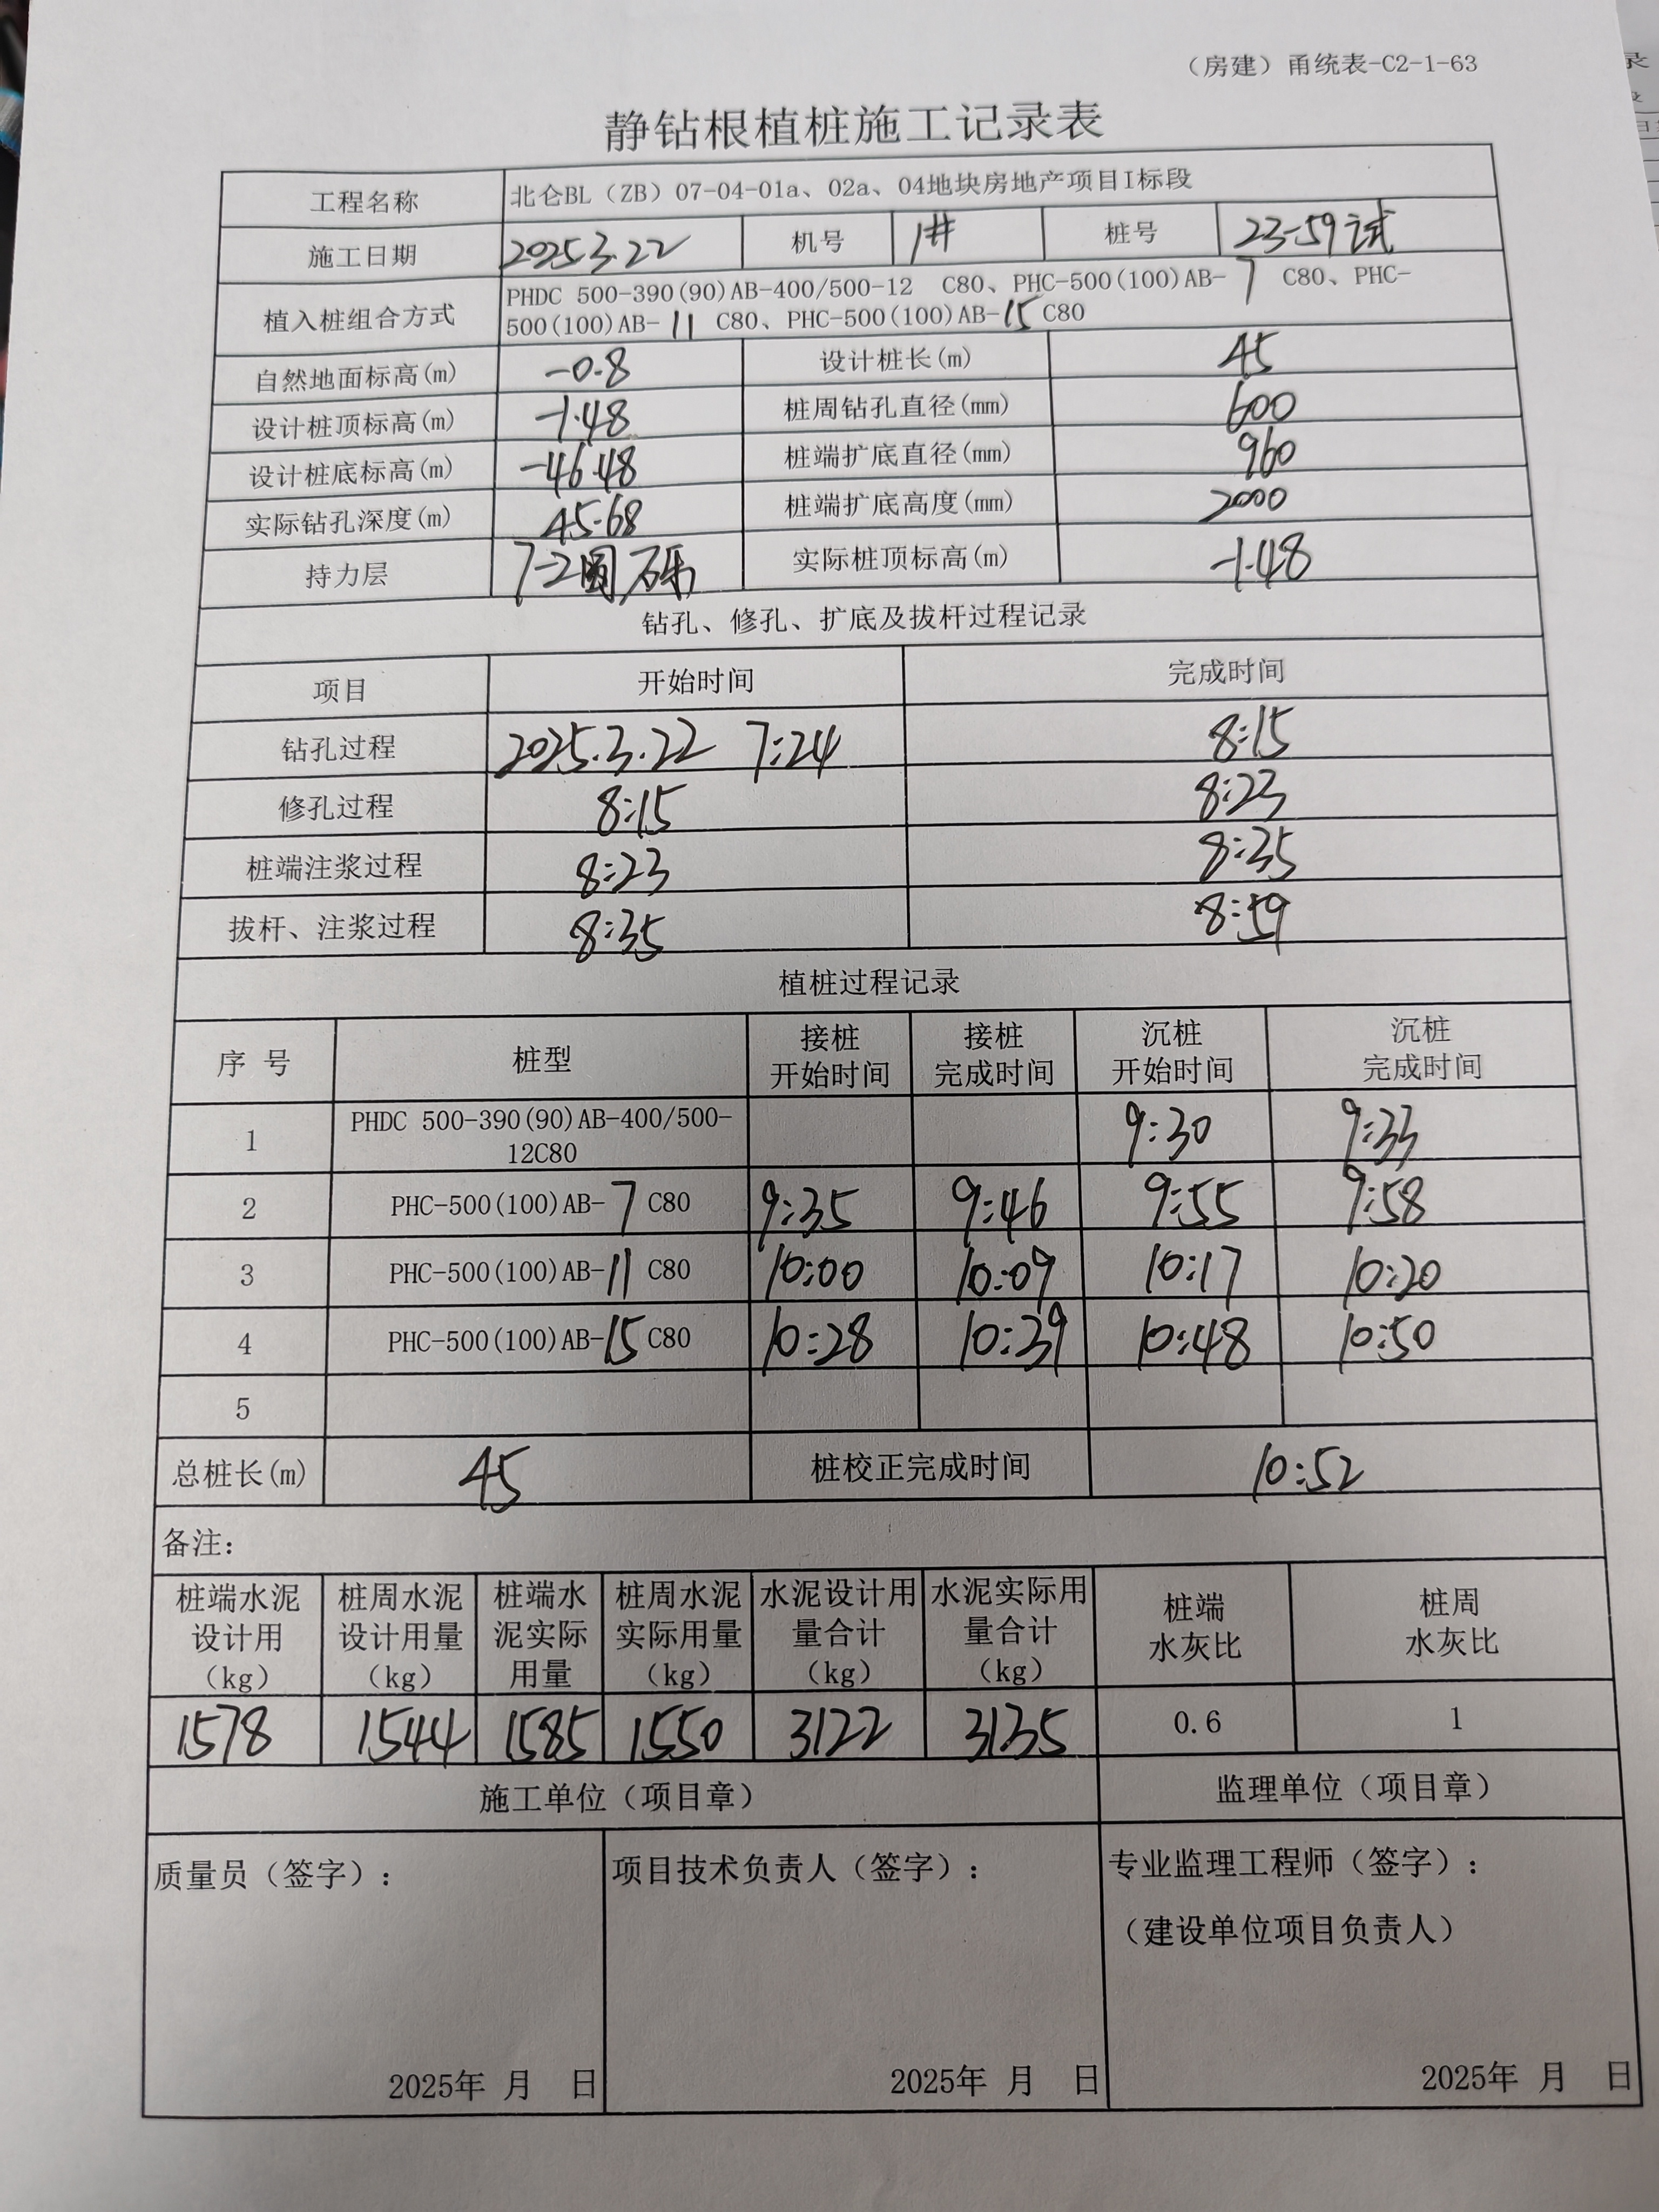 （房建）甬统表-C2-1-63
静钻根植桩施工记录表
工程名称 北仑BL（ZB）07-04-01a、02a、04地块房地产项目I标段
施工日期 2025.3.22 机号 1# 桩号 23-59试
植入桩组合方式 PHDC 500-390(90)AB-400/500-12 C80、PHC-500(100)AB-7 C80、PHC-
500(100)AB-11 C80、PHC-500(100)AB-15 C80
自然地面标高(m) -0.8 设计桩长(m) 45
设计桩顶标高(m) -1.48 桩周钻孔直径(mm) 600
设计桩底标高(m) -46.48 桩端扩底直径(mm) 960
实际钻孔深度(m) 45.68 桩端扩底高度(mm) 2000
持力层 7-2圆砾 实际桩顶标高(m) -1.48
钻孔、修孔、扩底及拔杆过程记录
项目 开始时间 完成时间
钻孔过程 2025.3.22 7:24 8:15
修孔过程 8:15 8:23
桩端注浆过程 8:23 8:35
拔杆、注浆过程 8:35 8:59
植桩过程记录
序 号 桩型 接桩 开始时间 接桩 完成时间 沉桩 开始时间 沉桩 完成时间
1 PHDC 500-390(90)AB-400/500-12C80 9:30 9:33
2 PHC-500(100)AB-7 C80 9:35 9:46 9:55 9:58
3 PHC-500(100)AB-11 C80 10:00 10:09 10:17 10:20
4 PHC-500(100)AB-15 C80 10:28 10:39 10:48 10:50
5
总桩长(m) 45 桩校正完成时间 10:52
备注:
桩端水泥设计用（kg） 桩周水泥设计用量（kg） 桩端水泥实际用量 桩周水泥实际用量（kg） 水泥设计用量合计（kg） 水泥实际用量合计（kg） 桩端水灰比 桩周水灰比
1578 1544 1585 1550 3122 3135 0.6 1
施工单位（项目章） 监理单位（项目章）
质量员（签字）: 项目技术负责人（签字）: 专业监理工程师（签字）:
（建设单位项目负责人）
2025年 月 日 2025年 月 日 2025年 月 日